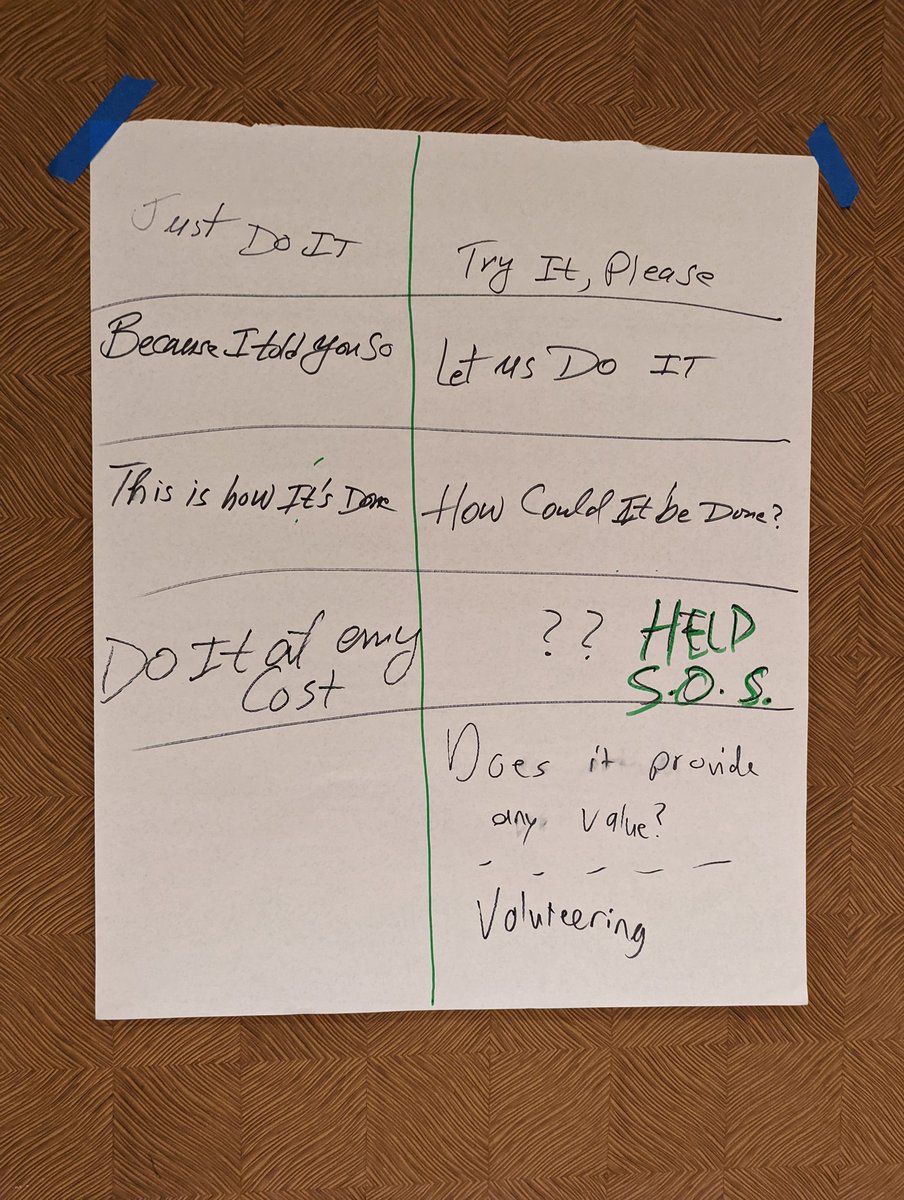 Just Do IT
Try It, Please
Because I told you so
Let us Do IT
This is how It's Done
How Could It be Done?
Do It at any
Cost
?? HELP
S.O.S.
Does it provide
any value?
Voluteering